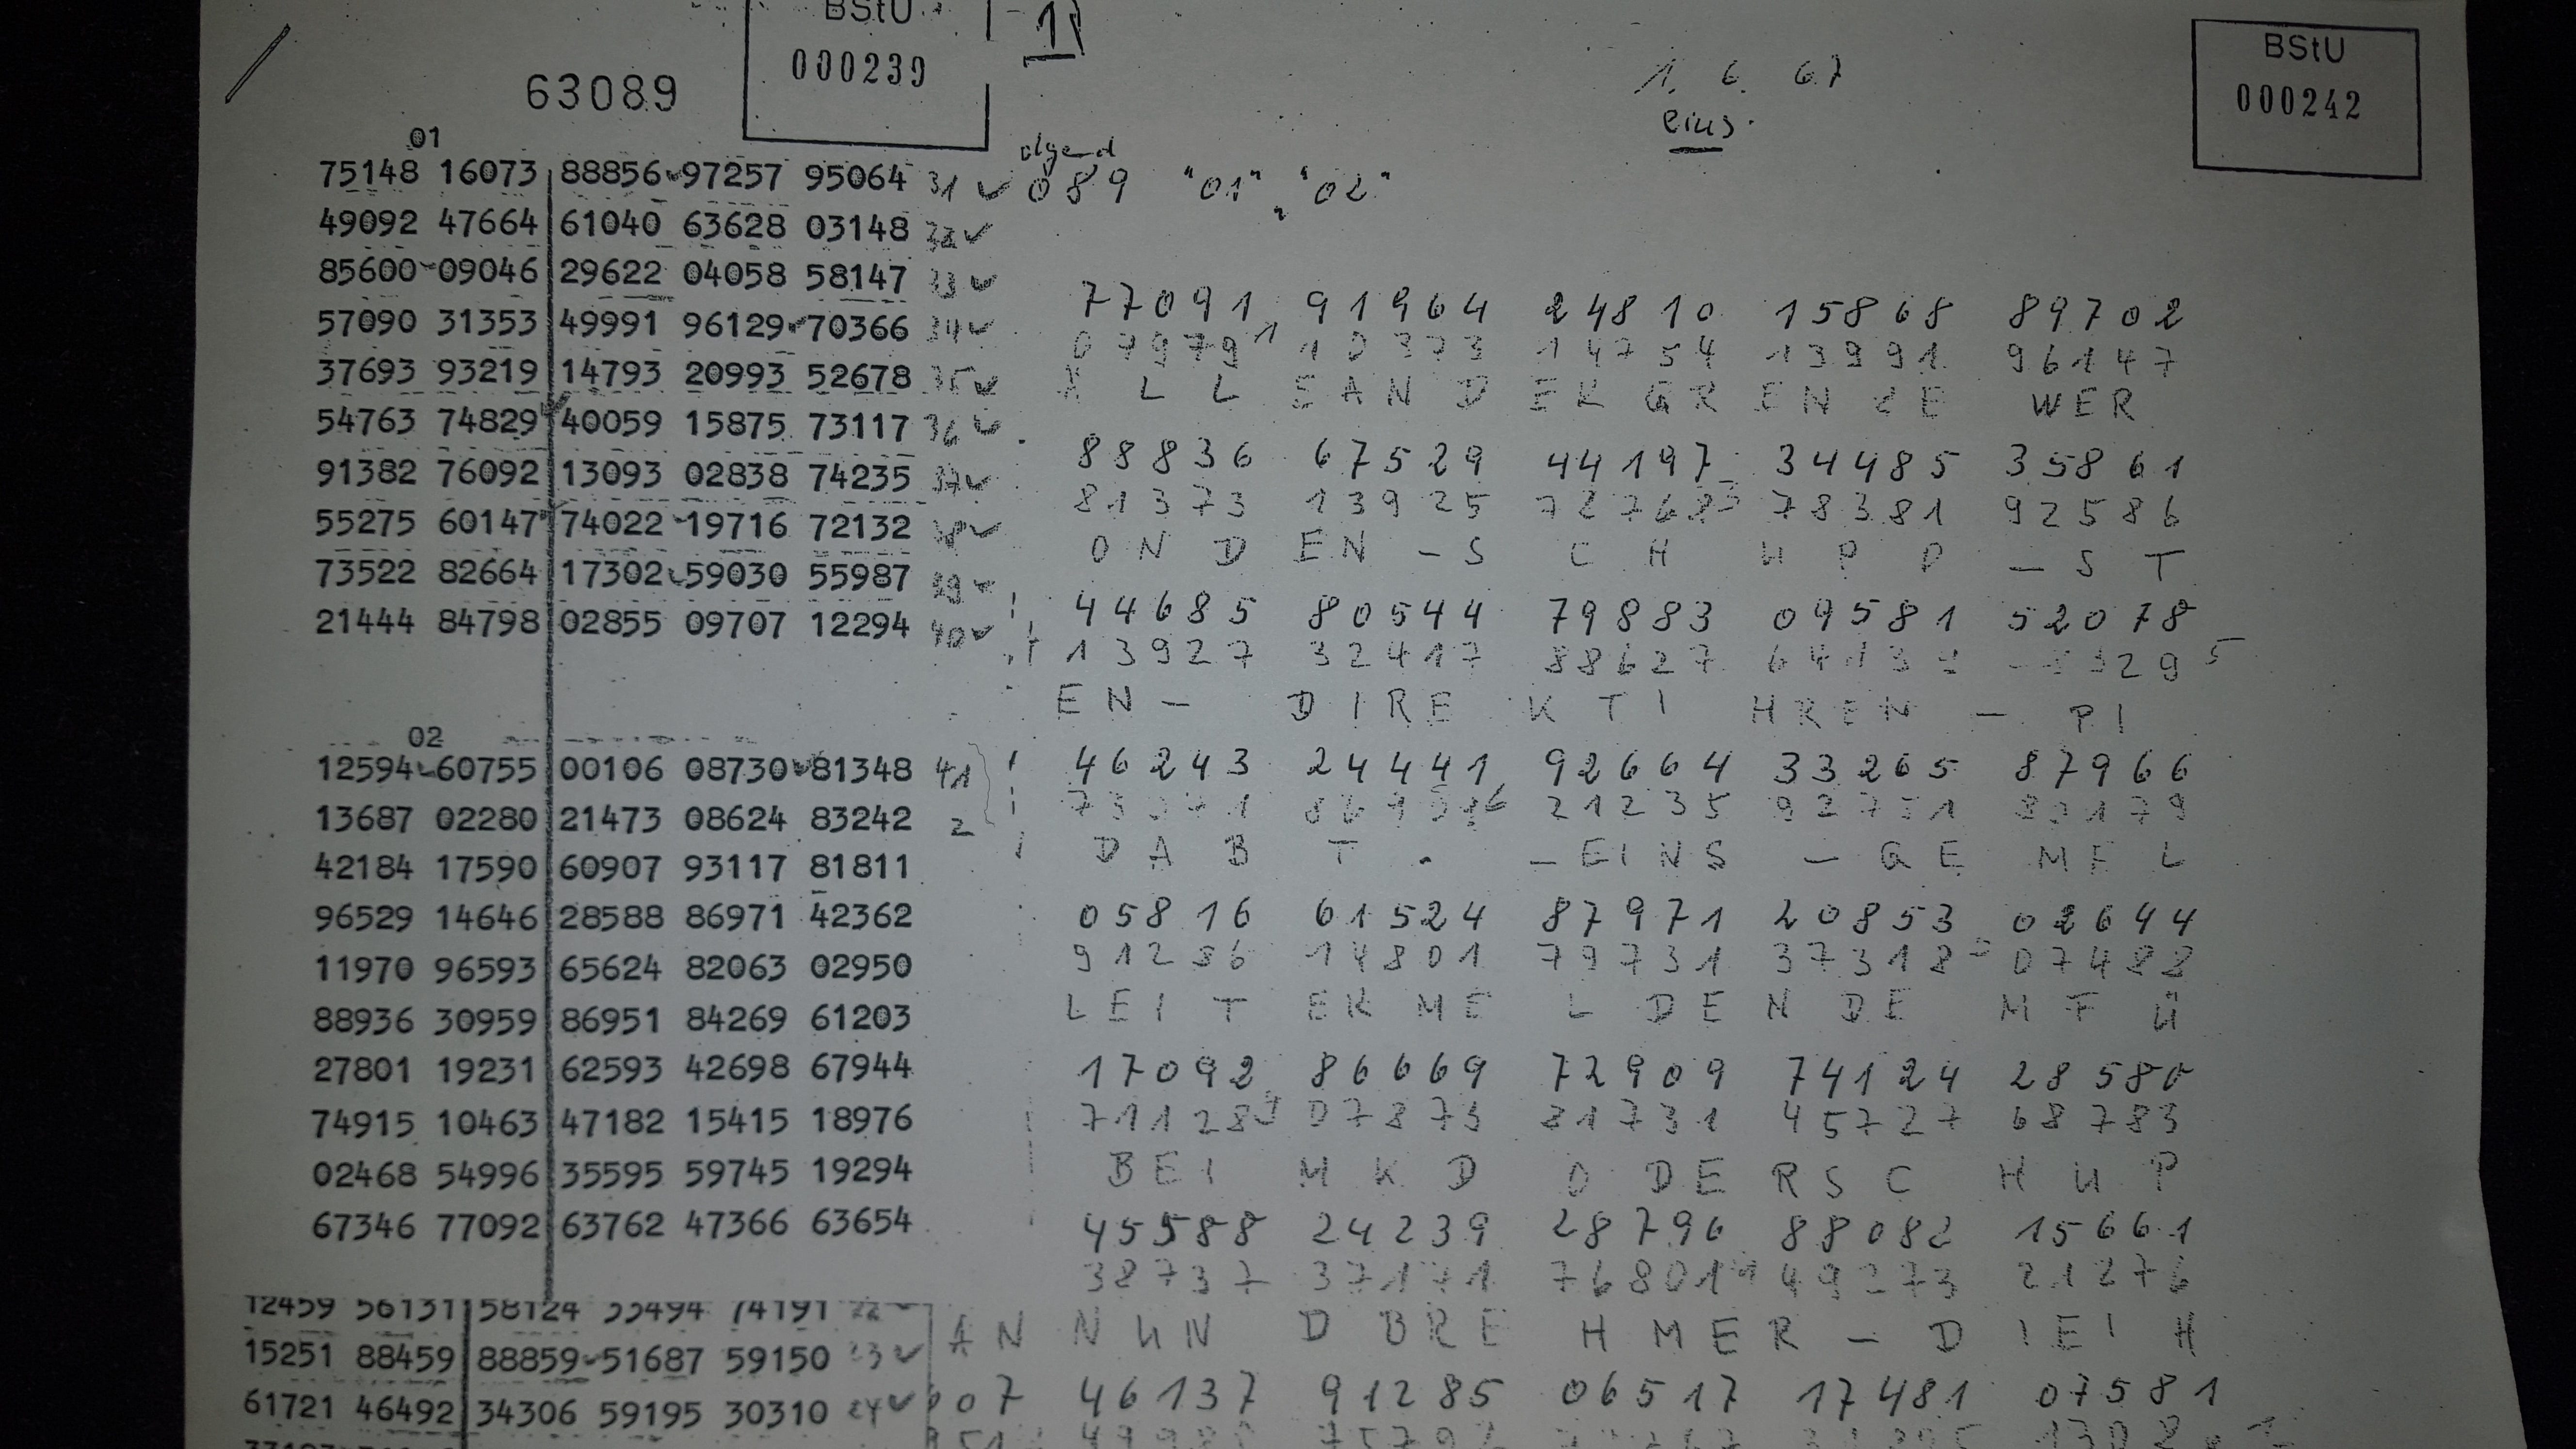 BStU
000239
63089
01
75148 16073 88856 97257 95064 31
49092 47664 61040 63628 03148 32
85600 09046 29622 04058 58147 33
57090 31353 49991 96129 70366 34
37693 93219 14793 20993 52678 35
54763 74829 40059 15875 73117 36
91382 76092 13093 02838 74235 37
55275 60147 74022 19716 72132 38
73522 82664 17302 59030 55987 39
21444 84798 02855 09707 12294 40
02
12594 60755 00106 08730 81348 41
13687 02280 21473 08624 83242 2
42184 17590 60907 93117 81811
96529 14646 28588 86971 42362
11970 96593 65624 82063 02950
88936 30959 86951 84269 61203
27801 19231 62593 42698 67944
74915 10463 47182 15415 18976
02468 54996 35595 59745 19294
67346 77092 63762 47366 63654
12459 56131 58124 53494 74191 22
15251 88459 88859 51687 59150 23
61721 46492 34306 59195 30310 24
1
1. 6. 67
eins.
BStU
000242
089 "01", "02"
77091 91964 24810 15868 89702
07979 10373 14754 13991 96147
A L L E A N D E R G R E N Z E W E R
88836 67529 44197 34485 35861
81373 13925 72768 78381 92586
O N D E N - S C H U P P - S T
44685 80544 79883 09581 52078
13927 32417 88627
E N - D I R E K T I H R E N - P I
46243 24441 92664 33265 87966
21235 92731
D A B T . - E I N S - G E M E L
05816 61524 87971 20853 02644
91286 14801 79731 37318 07488
L E I T E R M E L D E N D E M F Ü
17092 86669 72909 74124 28580
71128 07873 81731 45727 68783
B E I M K D O D E R S C H U P
45588 24239 28796 88082 15661
38737 37171 76801 49273 21276
A N N U N D B R E H M E R - D I E I H
607 46137 91285 06517 17481 07581